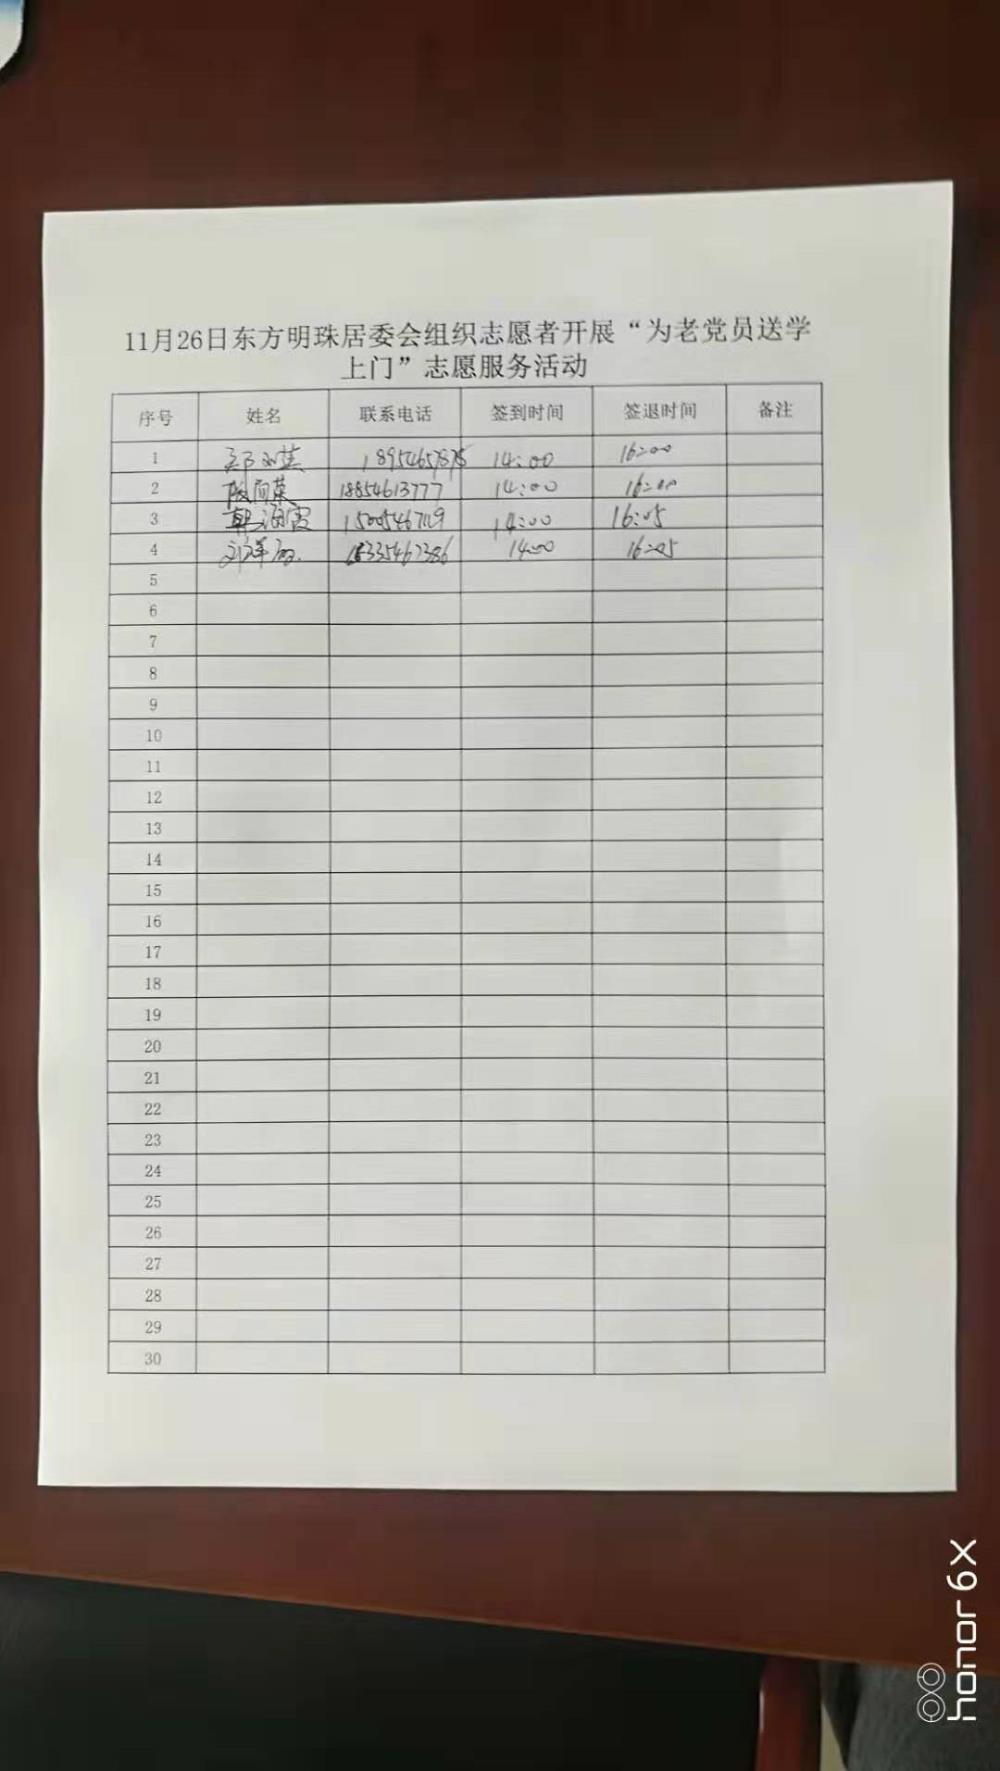 11月26日东方明珠居委会组织志愿者开展“为老党员送学
上门”志愿服务活动
序号 姓名 联系电话 签到时间 签退时间 备注
1 14:00 16:00
2 18854613777 14:00 16:00
3 韩海霞 14:00 16:05
4 14:00 16:05
5
6
7
8
9
10
11
12
13
14
15
16
17
18
19
20
21
22
23
24
25
26
27
28
29
30
honor 6X